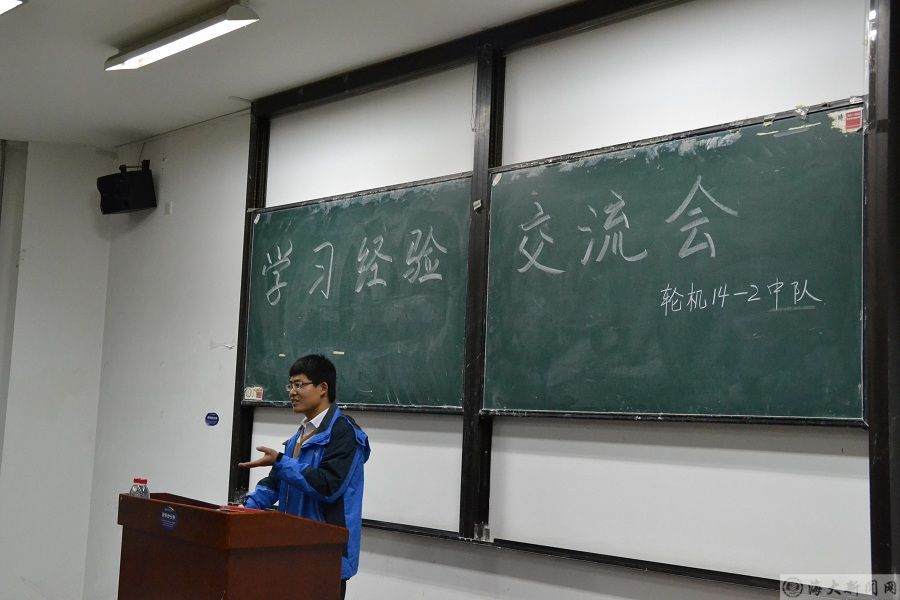 学习经验交流会
轮机14-2中队
海大新闻网